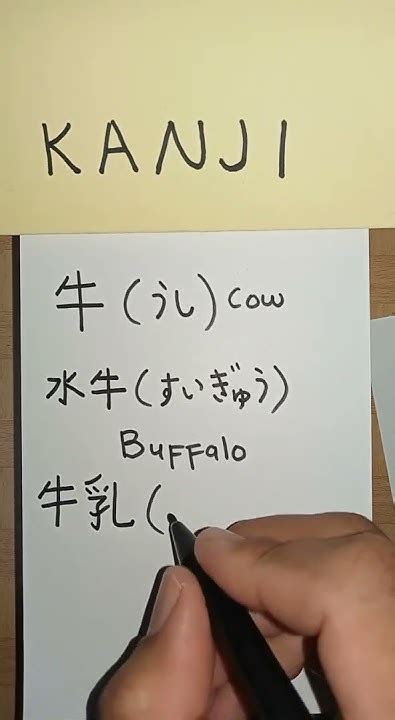 KANJI
牛(うし)cow
水牛(すいぎゅう)
Buffalo
牛乳(